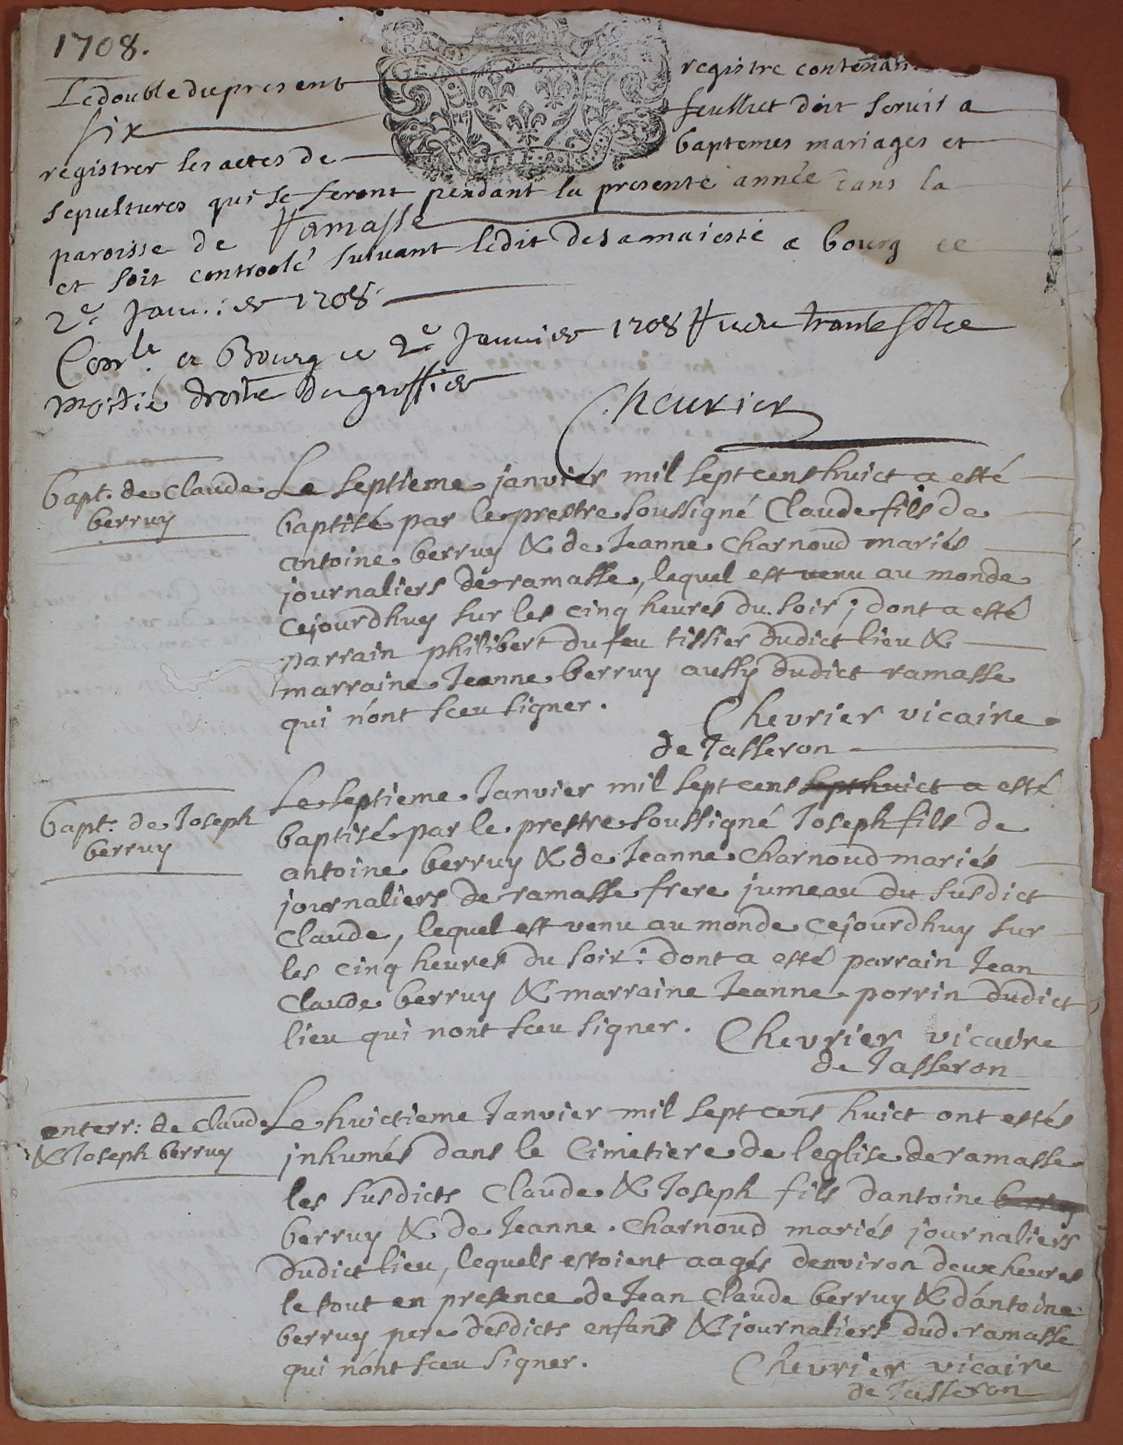 1708.
Le double du present registre contenant
six feuillet doit servir a
registrer les actes de baptemes mariages et
sepultures qui se feront pendant la presente année dans la
paroisse de Ramasse
et soit controolé suivant ledit de sa maiesté a bourg ce
2e Janvier 1708
Conle a Bourg ce 2e Janvier 1708 trante solce
moitié droitte du greffier
Cheurier
bapt. de Claude
berruy
Le septieme janvier mil sept cens huict a esté
baptisé par le prestre soussigné Claude fils de
antoine berruy & de Jeanne Charnoud mariés
journaliers de ramasse, lequel est venu au monde
cejourdhuy sur les cinq heures du soir; dont a esté
parrain philibert dufeu tissier dudict lieu &
marraine Jeanne berruy aussy dudict ramasse
qui n'ont sceu signer. Chevrier vicaire
de Jasseron
bapt: de Joseph
berruy
Le septieme Janvier mil sept cens sept huict a esté
baptisé par le prestre soussigné Joseph fils de
antoine berruy & de Jeanne Charnoud mariés
journaliers de ramasse frere jumeau du susdict
Claude, lequel est venu au monde cejourdhuy sur
les cinq heures du soir: dont a esté parrain Jean
Claude berruy & marraine Jeanne porrin dudict
lieu qui nont sceu signer. Chevrier vicaire
de Jasseron
enterr: de Claude
& Joseph berruy
Le huictieme Janvier mil sept cens huict ont estés
jnhumés dans le Cimetiere de leglise de ramasse
les susdicts Claude & Joseph fils dantoine
berruy & de Jeanne Charnoud mariés journaliers
dudict lieu, lequels estoient aagés denviron deux heures
le tout en presence de Jean Claude berruy & d'antoine
berruy pere desdicts enfans & journaliers dud. ramasse
qui n'ont sceu signer. Chevrier vicaire
de Jasseron